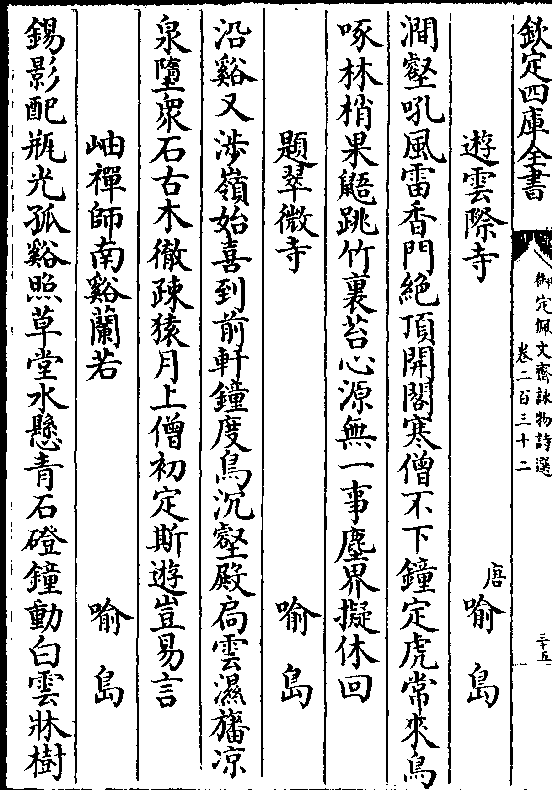 欽定四庫全書
御定佩文齋詠物詩選
卷二百三十二
三十五
遊雲際寺 唐喻島
澗壑吼風雷香門絶頂開閣寒僧不下鐘定虎常來鳥
啄林梢果鼯跳竹裏苔心源無一事塵界擬休回
題翠微寺 喻島
沿谿又渉嶺始喜到前軒鐘度鳥沉壑殿扃雲濕旛凉
泉墮衆石古木徹疎猿月上僧初定斯遊豈易言
岫禪師南谿蘭若 喻島
錫影配瓶光孤谿照草堂水懸青石磴鐘動白雲牀樹